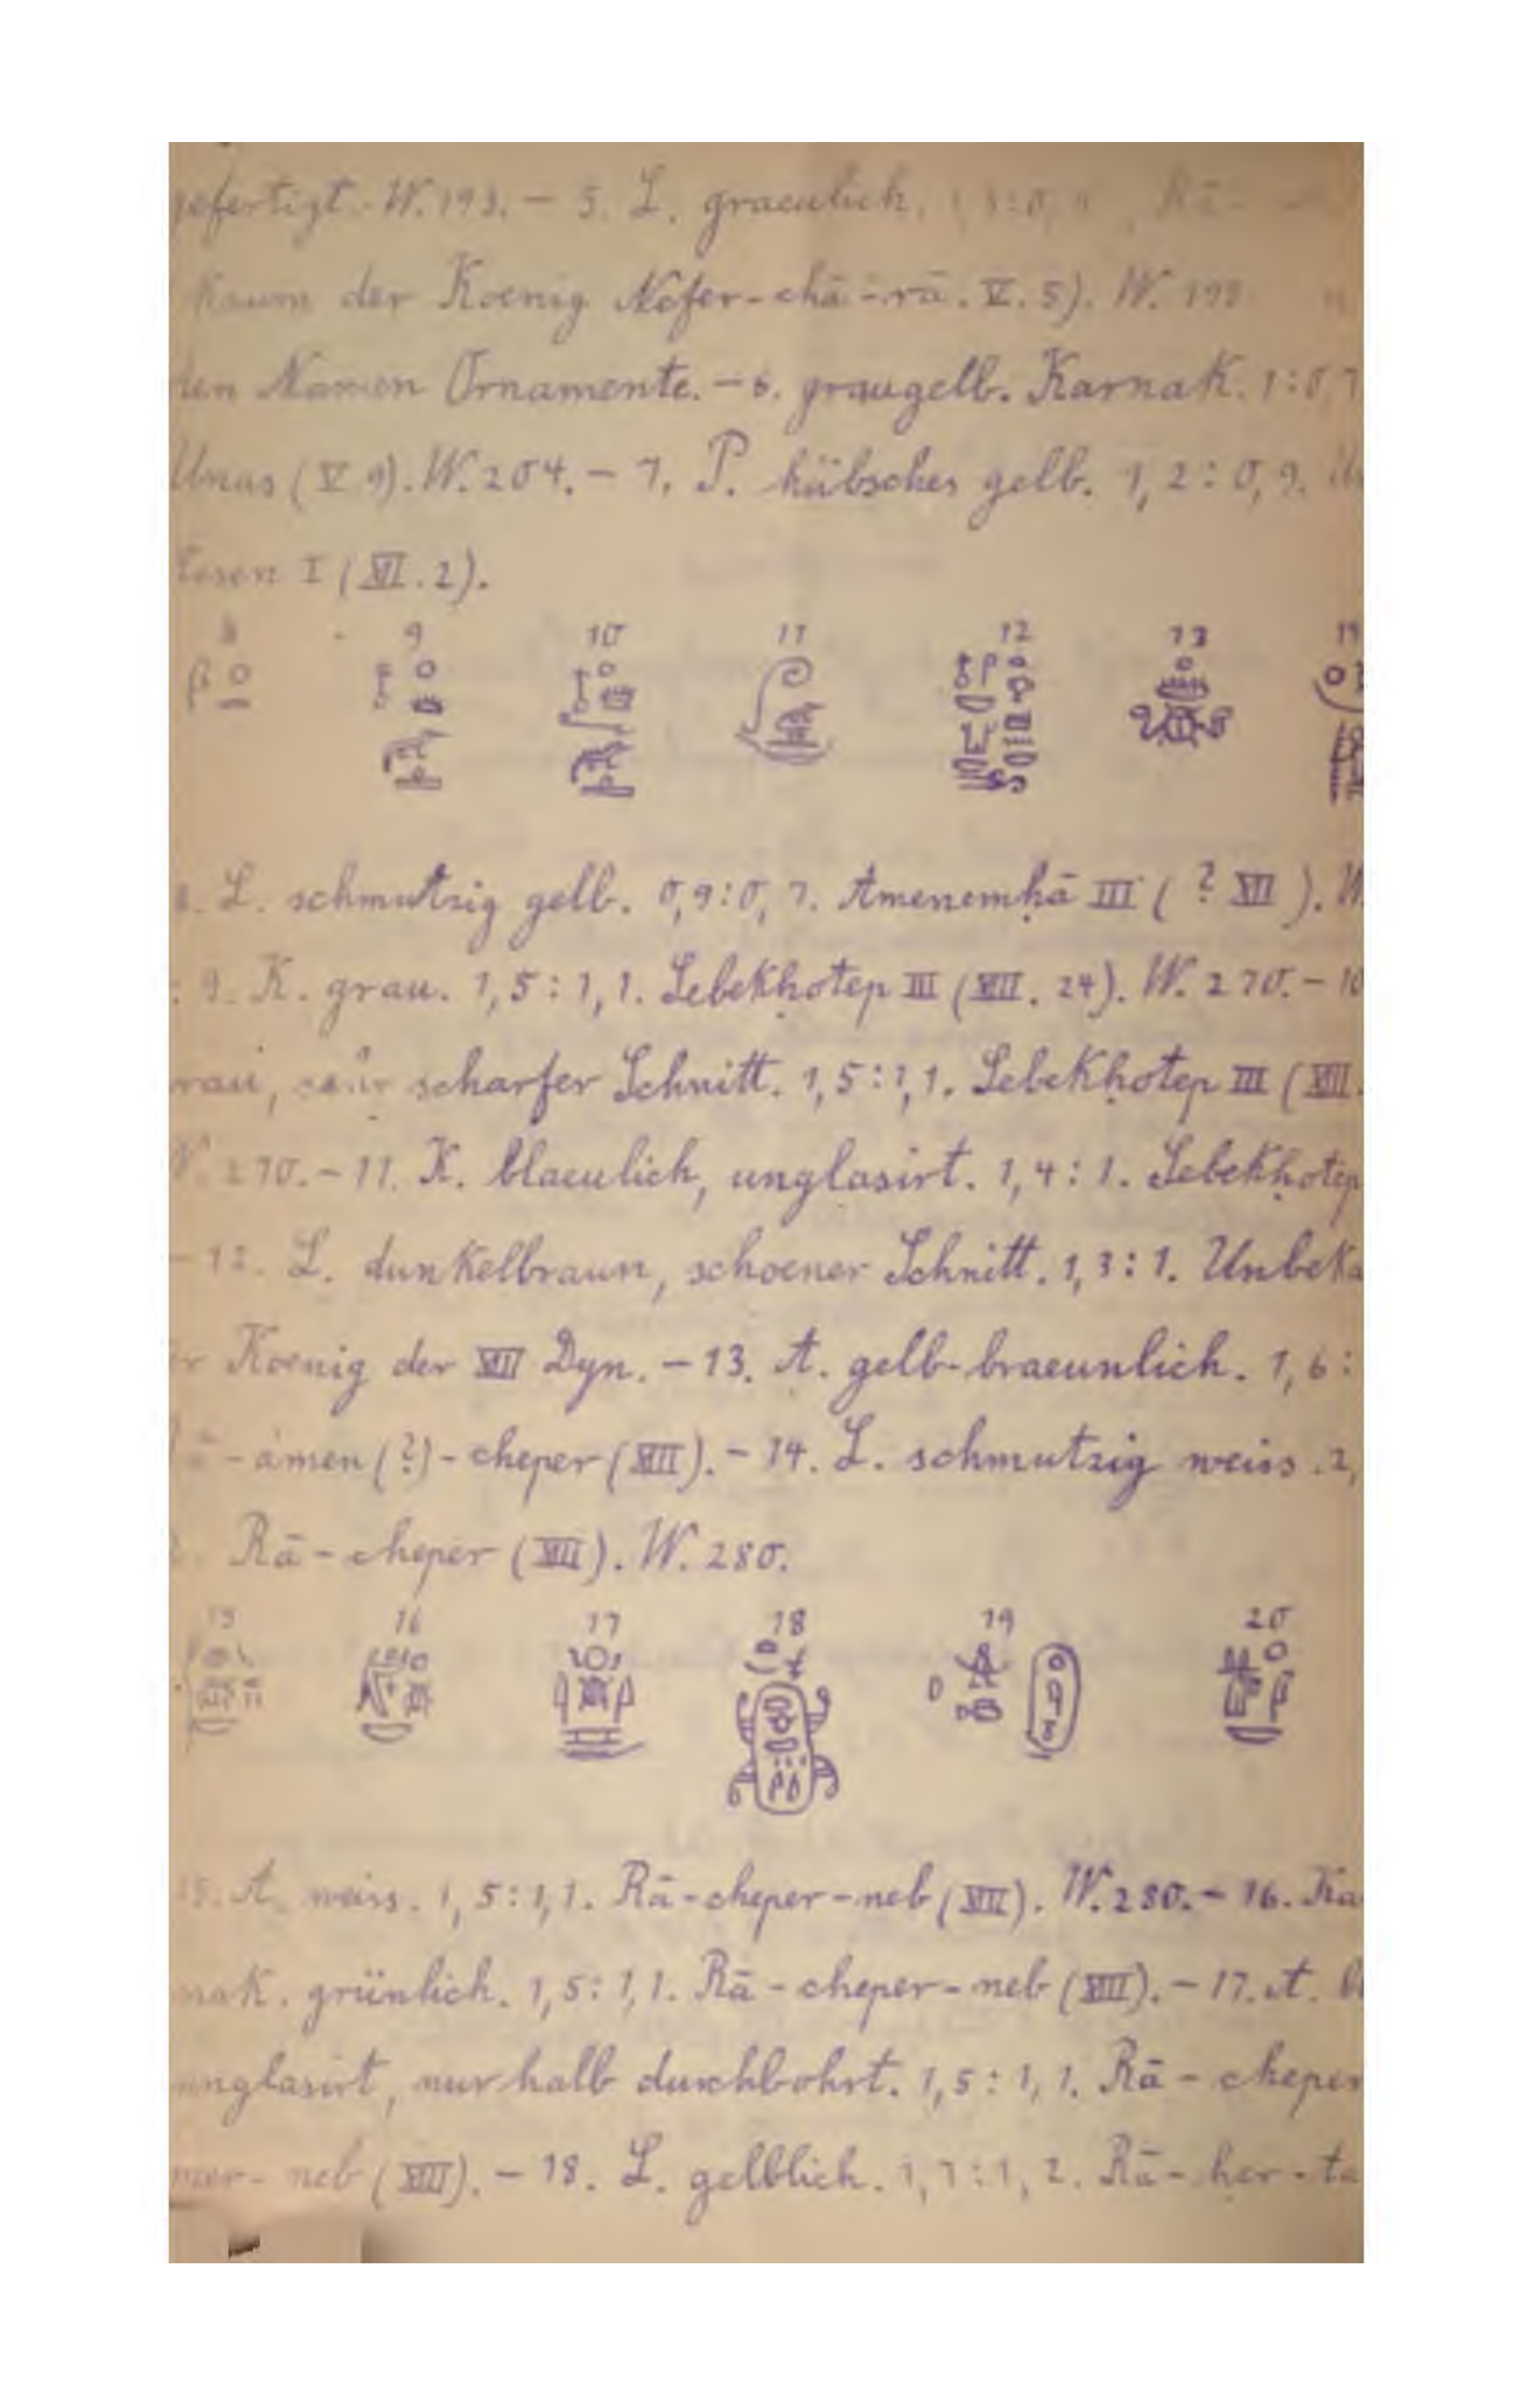 gefertigt. W. 193. – 5. L. graeulich. Rā-
Kaum der Koenig Nefer-chā-rā. V. 5). W. 193
den Namen Ornamente. – 6. graugelb. Karnak. 1:0,7
Unas (V 9). W. 204. – 7. P. hübsches gelb. 1,2:0,9.
tesen I (XII. 2).
8 9 10 11 12 13
L. schmutzig gelb. 0,9:0,7. Amenemḥā III (? XII). W.
9. K. grau. 1,5:1,1. Sebekḥotep III (XIII. 24). W. 270. – 10
rau, sehr scharfer Schnitt. 1,5:1,1. Sebekḥotep III (XIII.
W. 270. – 11. K. blaeulich, unglasirt. 1,4:1. Sebekḥotep
– 12. L. dunkelbraun, schoener Schnitt. 1,3:1. Unbeka
er Koenig der XIII Dyn. – 13. A. gelb-braeunlich. 1,6:
-amen (?)-cheper (XIII). – 14. L. schmutzig weiss. 2,
Rā-cheper (XIII). W. 280.
15 16 17 18 19 20
15. A. weiss. 1,5:1,1. Rā-cheper-neb (XIII). W. 280. – 16. Ka
nak. grünlich. 1,5:1,1. Rā-cheper-neb (XIII). – 17. A.
unglasirt, nur halb durchbohrt. 1,5:1,1. Rā-cheper
mer-neb (XIII). – 18. L. gelblich. 1,7:1,2. Rā-ḥer-ta